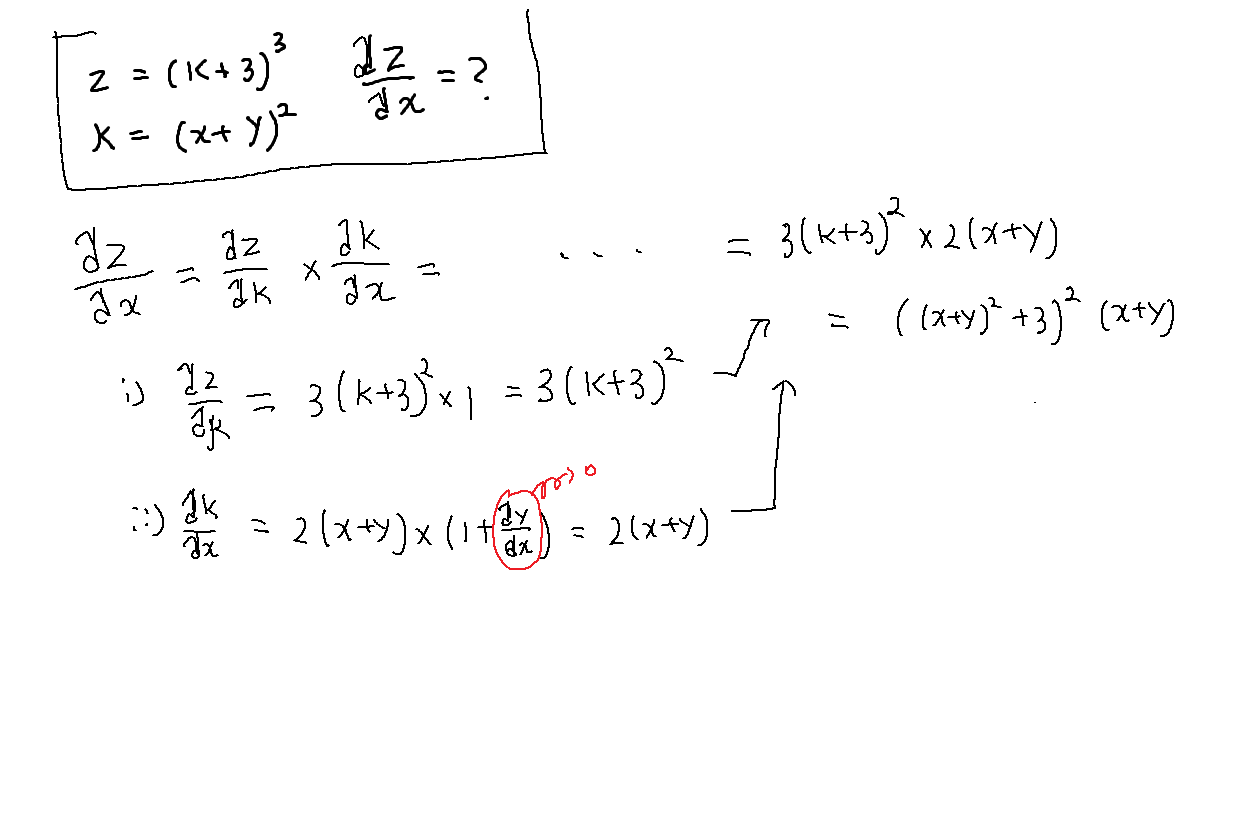 z = (k+3)³ ∂z/∂x = ?
k = (x+y)²
∂z/∂x = ∂z/∂k × ∂k/∂x = . . . = 3(k+3)² × 2(x+y)
= ((x+y)² + 3)² (x+y)
i) ∂z/∂k = 3(k+3)² × 1 = 3(k+3)²
ii) ∂k/∂x = 2(x+y) × (1 + ∂y/∂x) = 2(x+y)
0